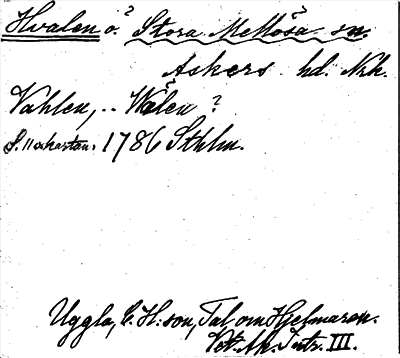 Hvalen ö.? Stora Mellösa sn.
Askers hd. Nrk.
Vahlen, .. Wålen ?
1786 Sthlm.
Uggla, C. H:son, Tal om Hjelmaren.
Vet. Ak. Intr. III.